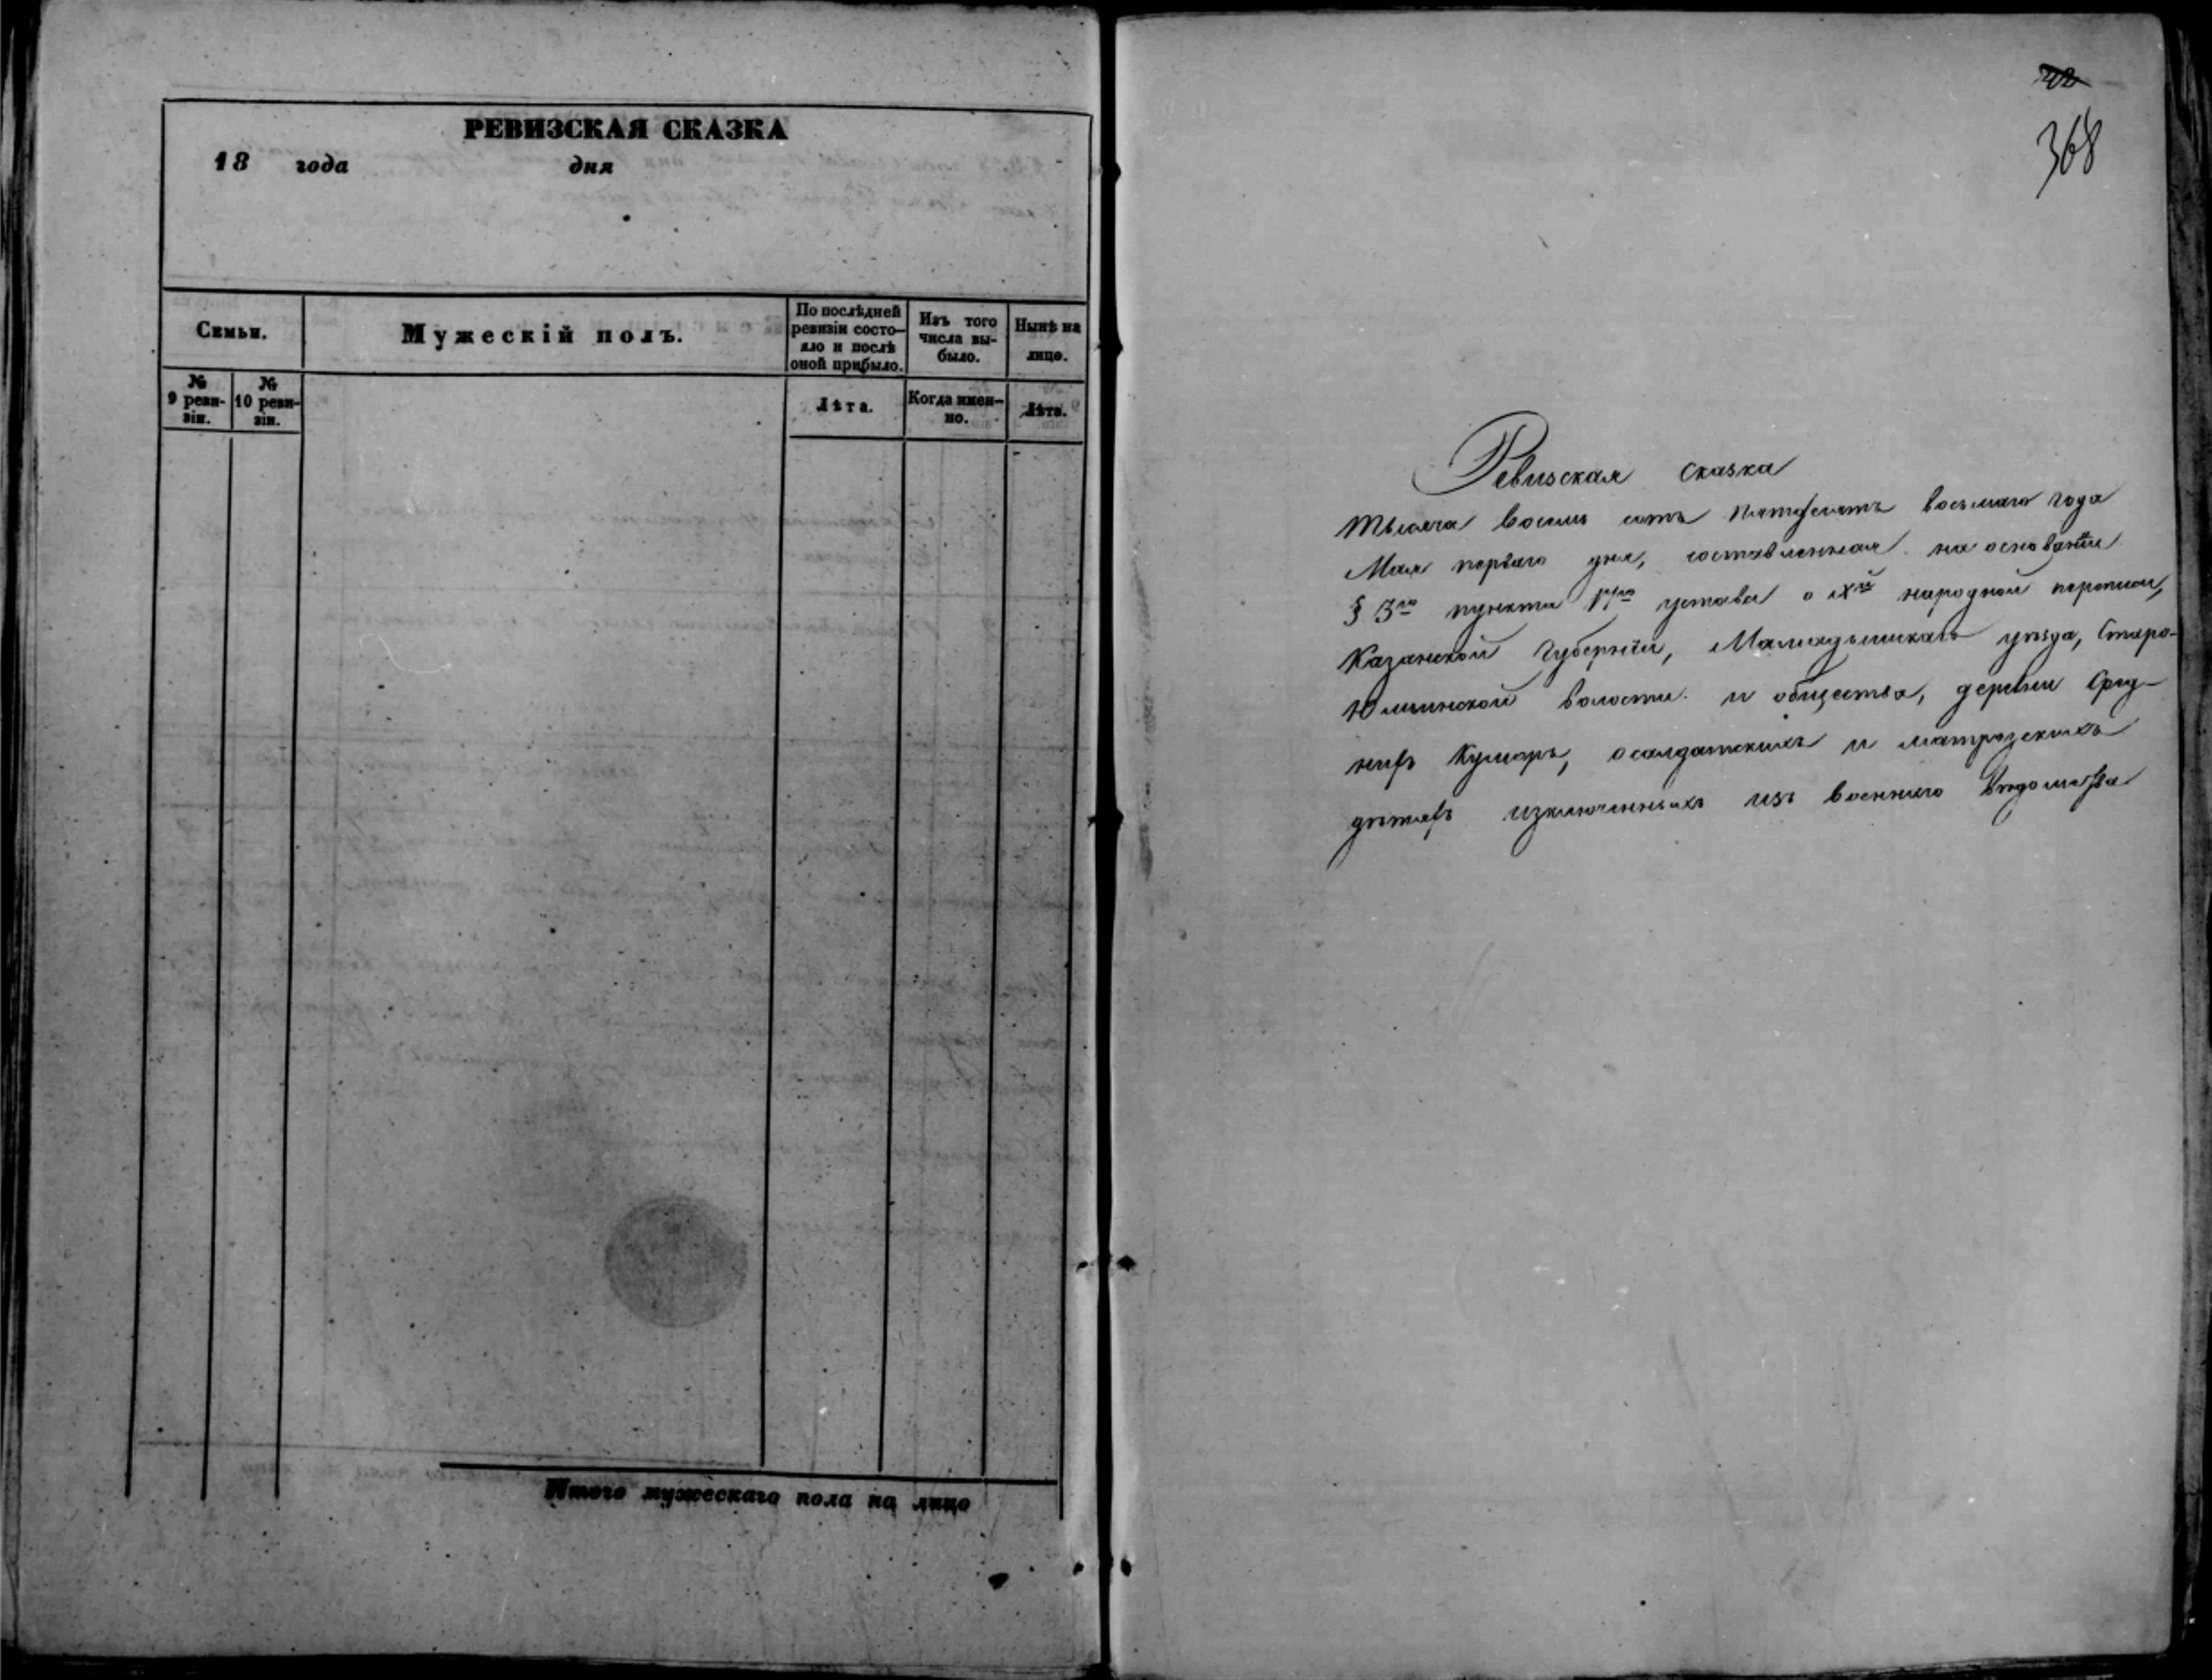 РЕВИЗСКАЯ СКАЗКА
18 года дня
Семьи.
Мужескій полъ.
По послѣдней
ревизіи состо-
яло и послѣ
оной прибыло.
Изъ того
числа вы-
было.
Нынѣ на
лицо.
№
9 реви-
зіи.
№
10 реви-
зіи.
Лѣта.
Когда имен-
но.
Лѣта.
Итого мужескаго пола на лицо
42
368
Ревизская сказка
Тысяча восемь сотъ пятдесятъ восьмаго года
Мая перваго дня, составленная на основаніи
§ 3го пункта устава о Xй народной переписи,
Казанской Губерніи, Мамадышскаго уѣзда, Старо-
Юмьинской волости и общества, деревни Сред-
нихъ Кумаръ, о салдатскихъ и матрозскихъ
дѣтяхъ изключенныхъ изъ военнаго вѣдомства